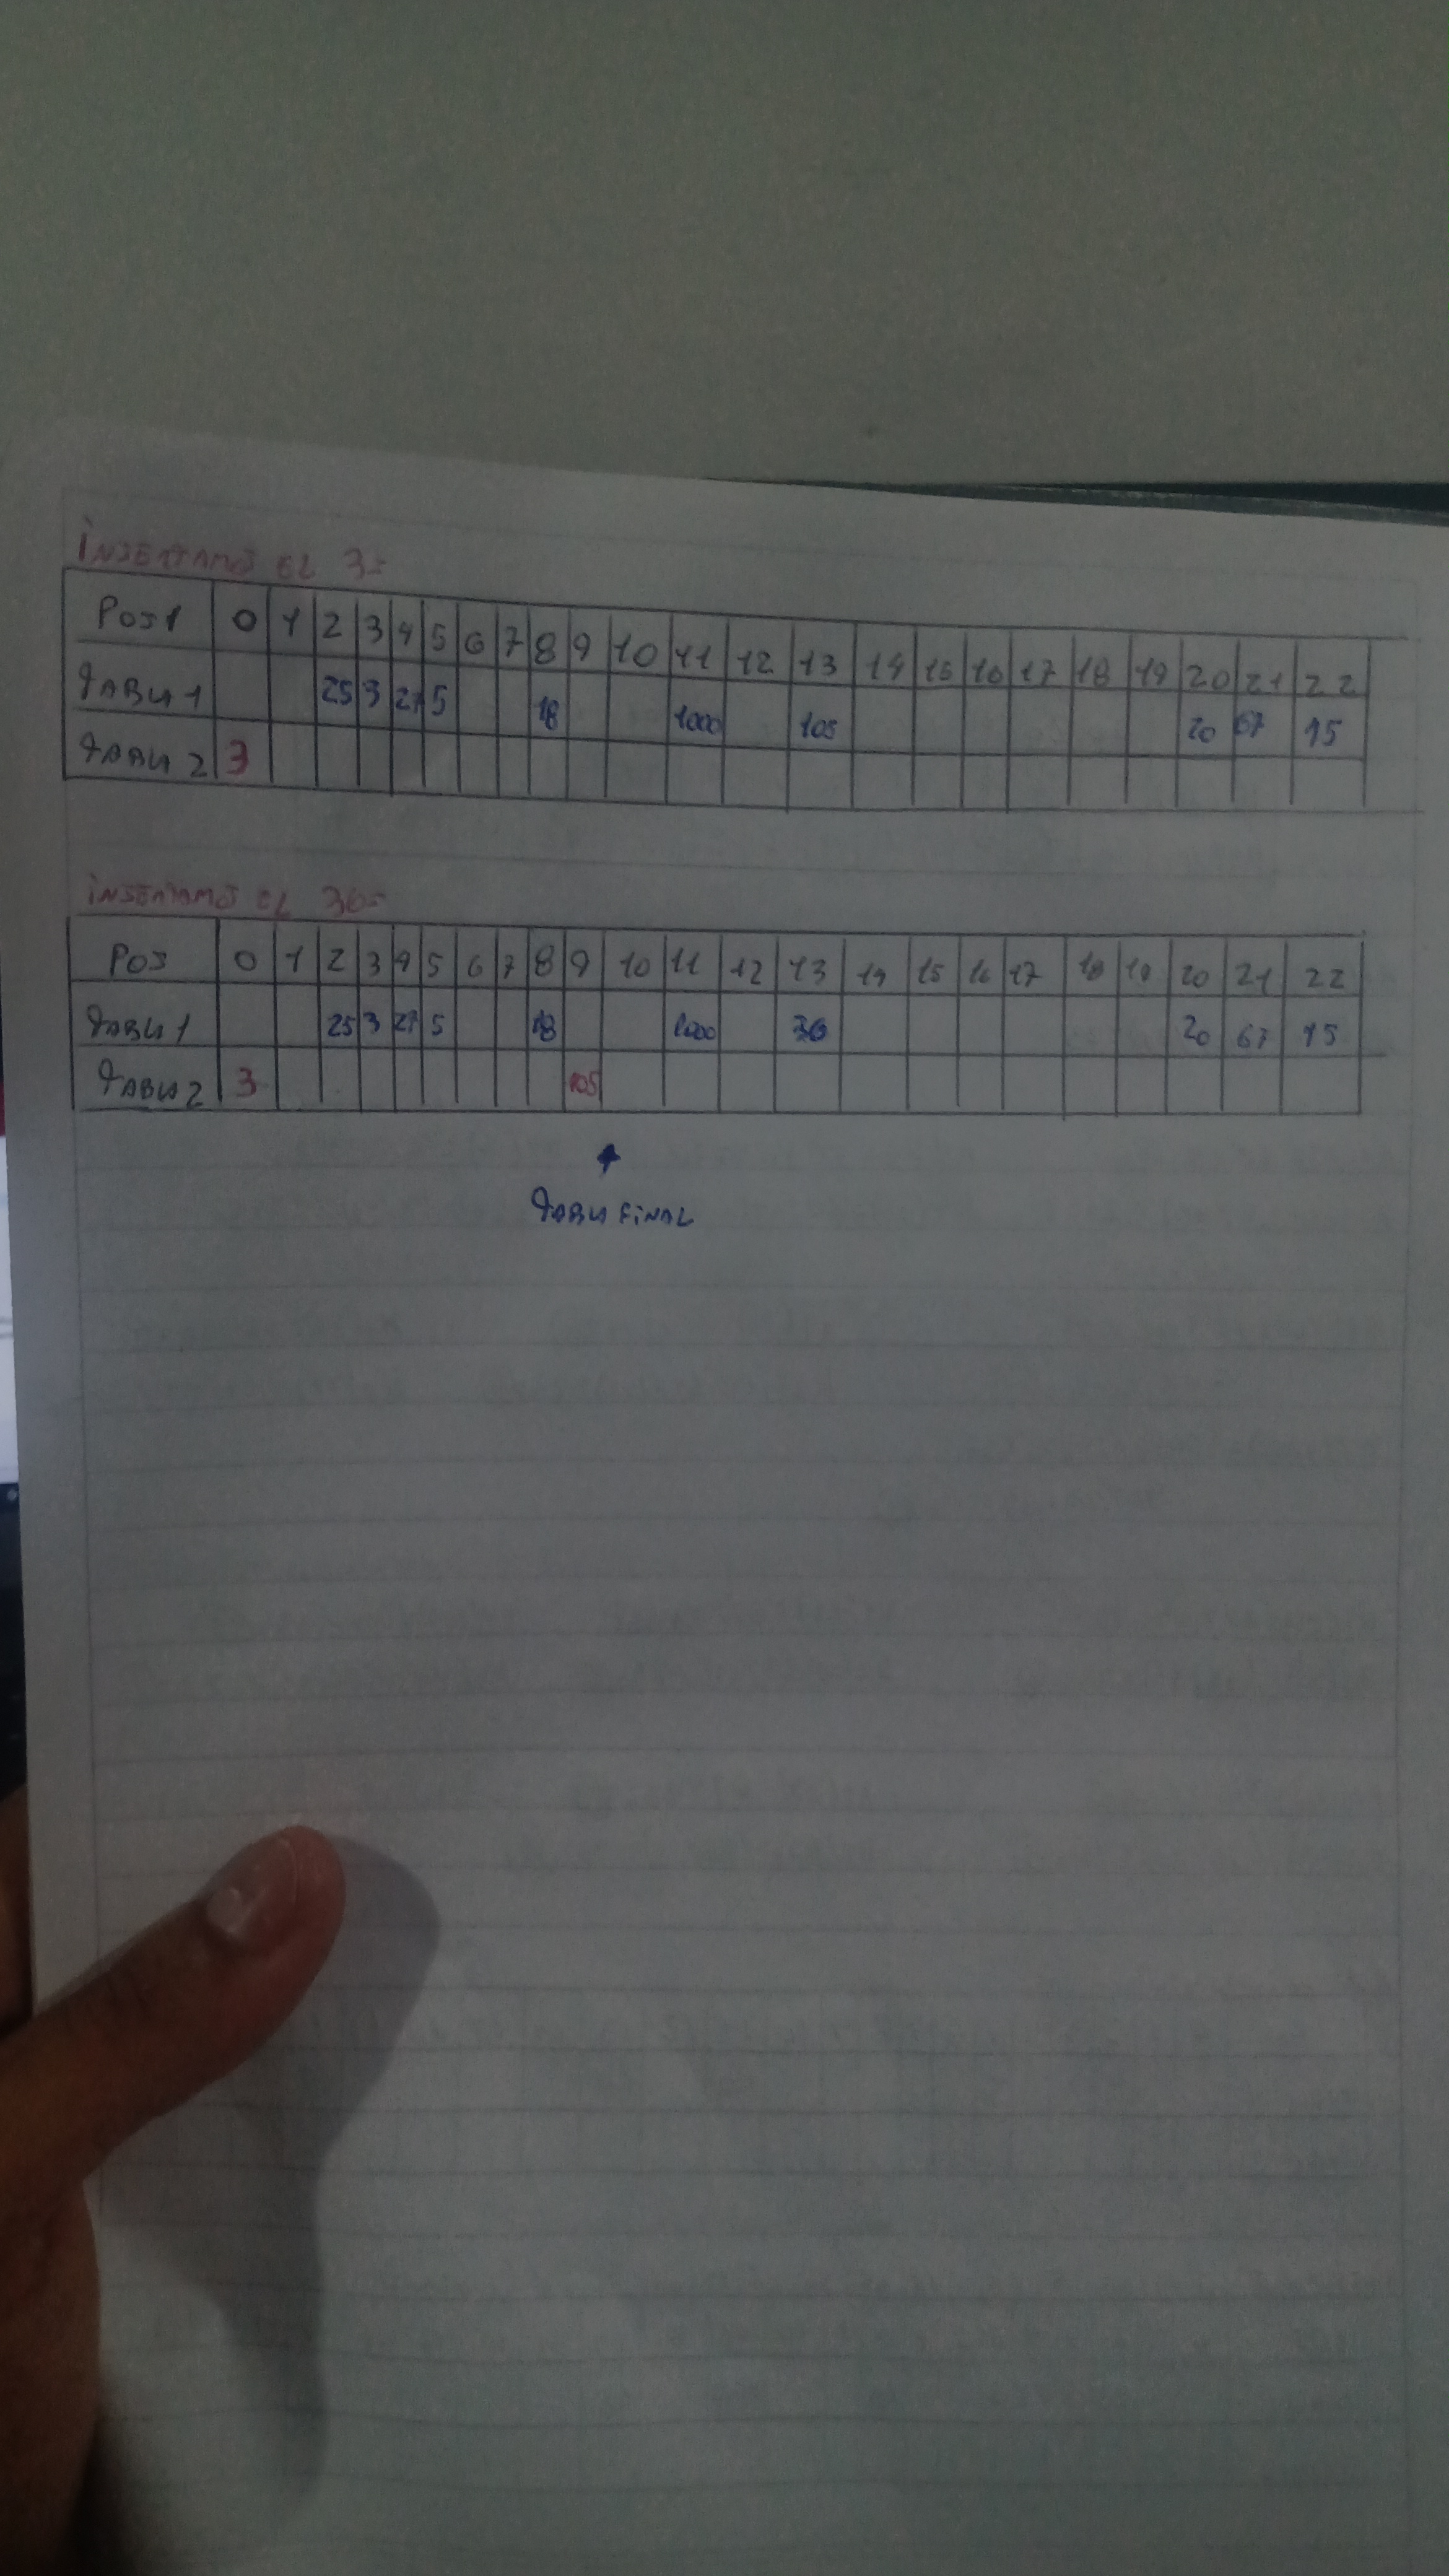 INSERTAMOS EL 3:
POS1 0 1 2 3 4 5 6 7 8 9 10 11 12 13 14 15 16 17 18 19 20 21 22
TABLA 1 25 3 27 5 18 1000 105 20 67 15
TABLA 2 3
INSERTAMOS EL 36:
POS 0 1 2 3 4 5 6 7 8 9 10 11 12 13 14 15 16 17 18 19 20 21 22
TABLA 1 25 3 27 5 18 1000 36 20 67 15
TABLA 2 3 105
TABLA FINAL